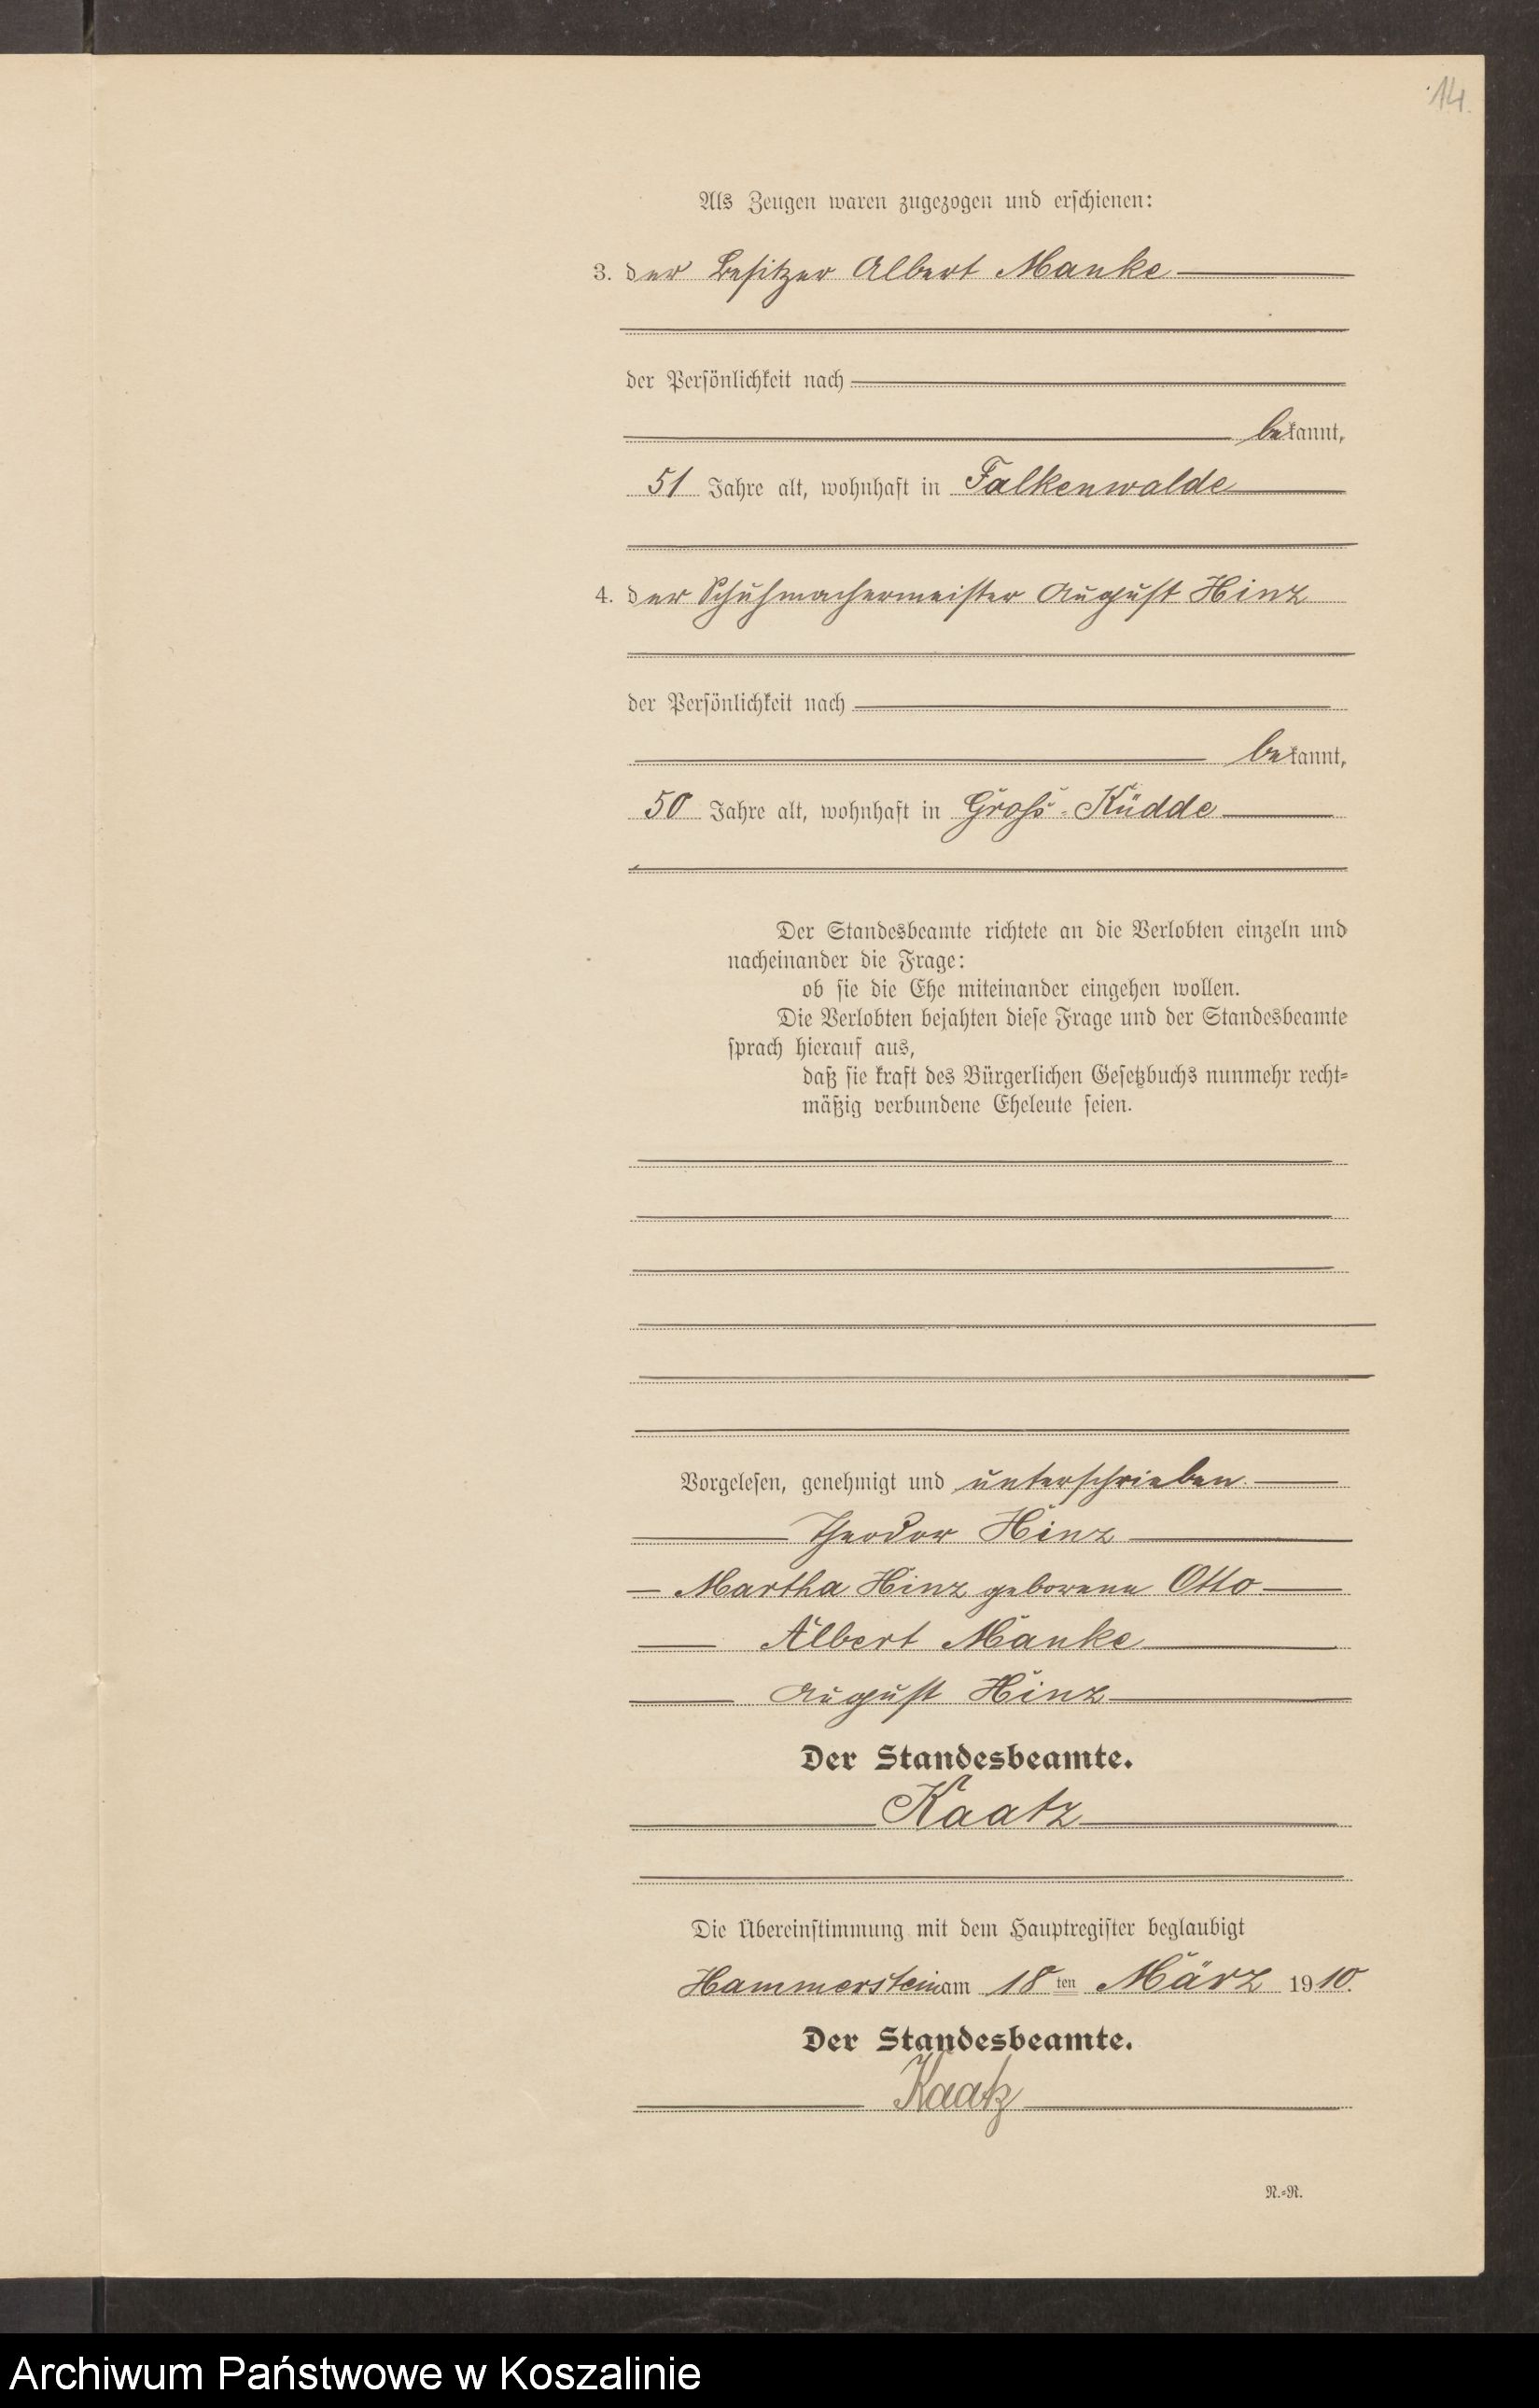 14.
Als Zeugen waren zugezogen und erschienen:
3. der Besitzer Albert Manke
der Persönlichkeit nach
bekannt,
51 Jahre alt, wohnhaft in Falkenwalde
4. der Schuhmachermeister August Hinz
der Persönlichkeit nach
bekannt,
50 Jahre alt, wohnhaft in Groß-Küdde
Der Standesbeamte richtete an die Verlobten einzeln und
nacheinander die Frage:
ob sie die Ehe miteinander eingehen wollen.
Die Verlobten bejahten diese Frage und der Standesbeamte
sprach hierauf aus,
daß sie kraft des Bürgerlichen Gesetzbuchs nunmehr recht-
mäßig verbundene Eheleute seien.
Vorgelesen, genehmigt und unterschrieben.
Theodor Hinz
Martha Hinz geborene Otto
Albert Manke
August Hinz
Der Standesbeamte.
Kaatz
Die Übereinstimmung mit dem Hauptregister beglaubigt
Hammerstein am 18ten März 1910.
Der Standesbeamte.
Kaatz
N.-R.
Archiwum Państwowe w Koszalinie